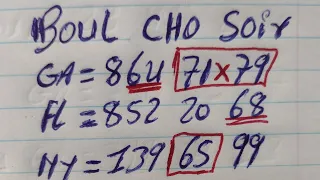 BOUL CHO SOir
GA = 864 71x79
FL = 852 20 68
NY = 139 65 99